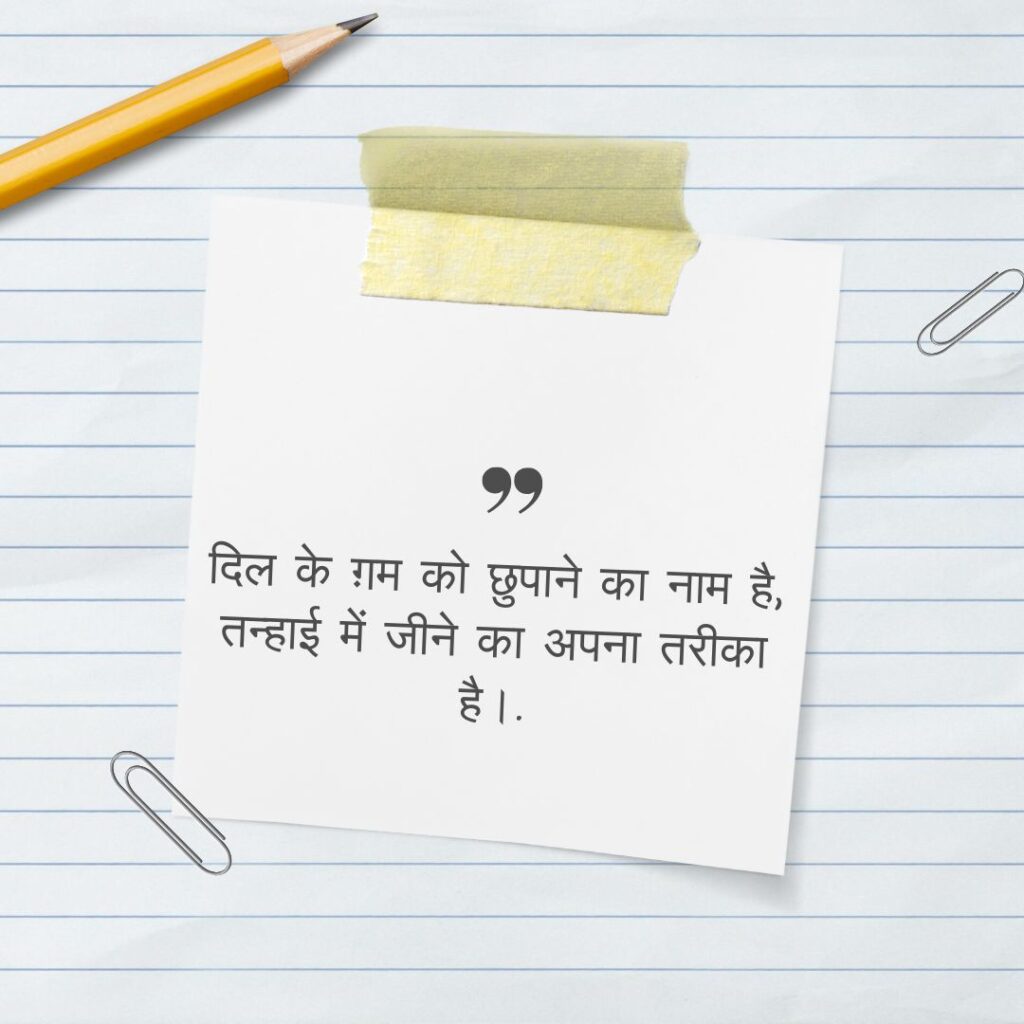 ❞
दिल के ग़म को छुपाने का नाम है,
तन्हाई में जीने का अपना तरीका
है।.